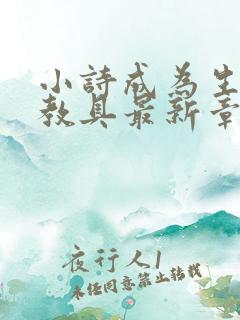 小詩成為生
教具最新章
夜行人1
未经同意禁止转载